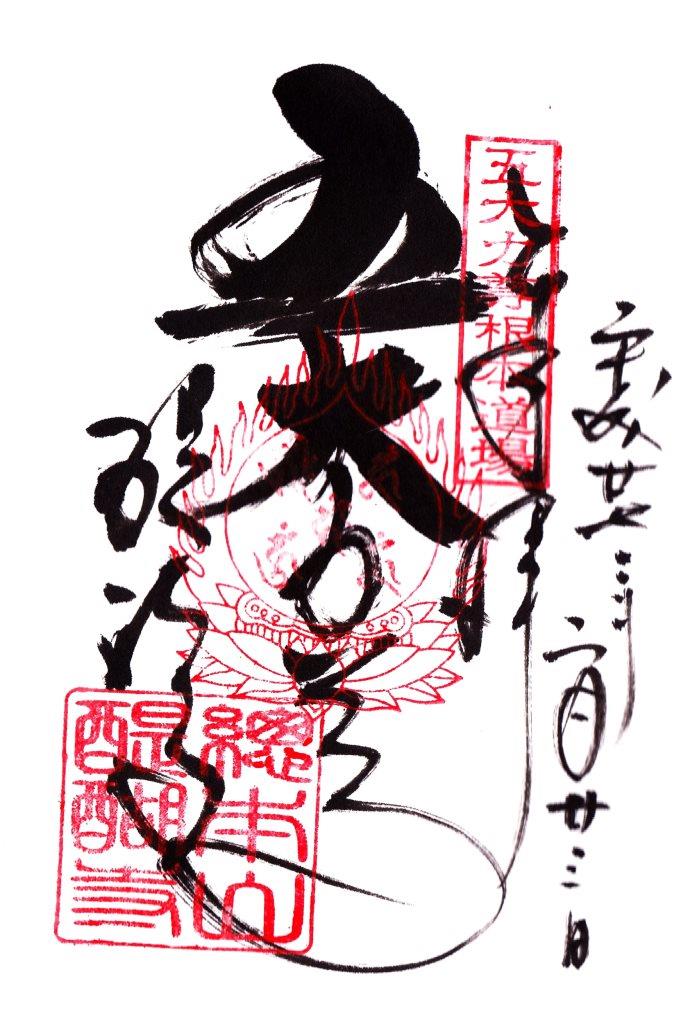 平成廿
二月廿三日
奉拝
五大力尊根本道場
五大力
醍醐寺
總本山
醍醐寺